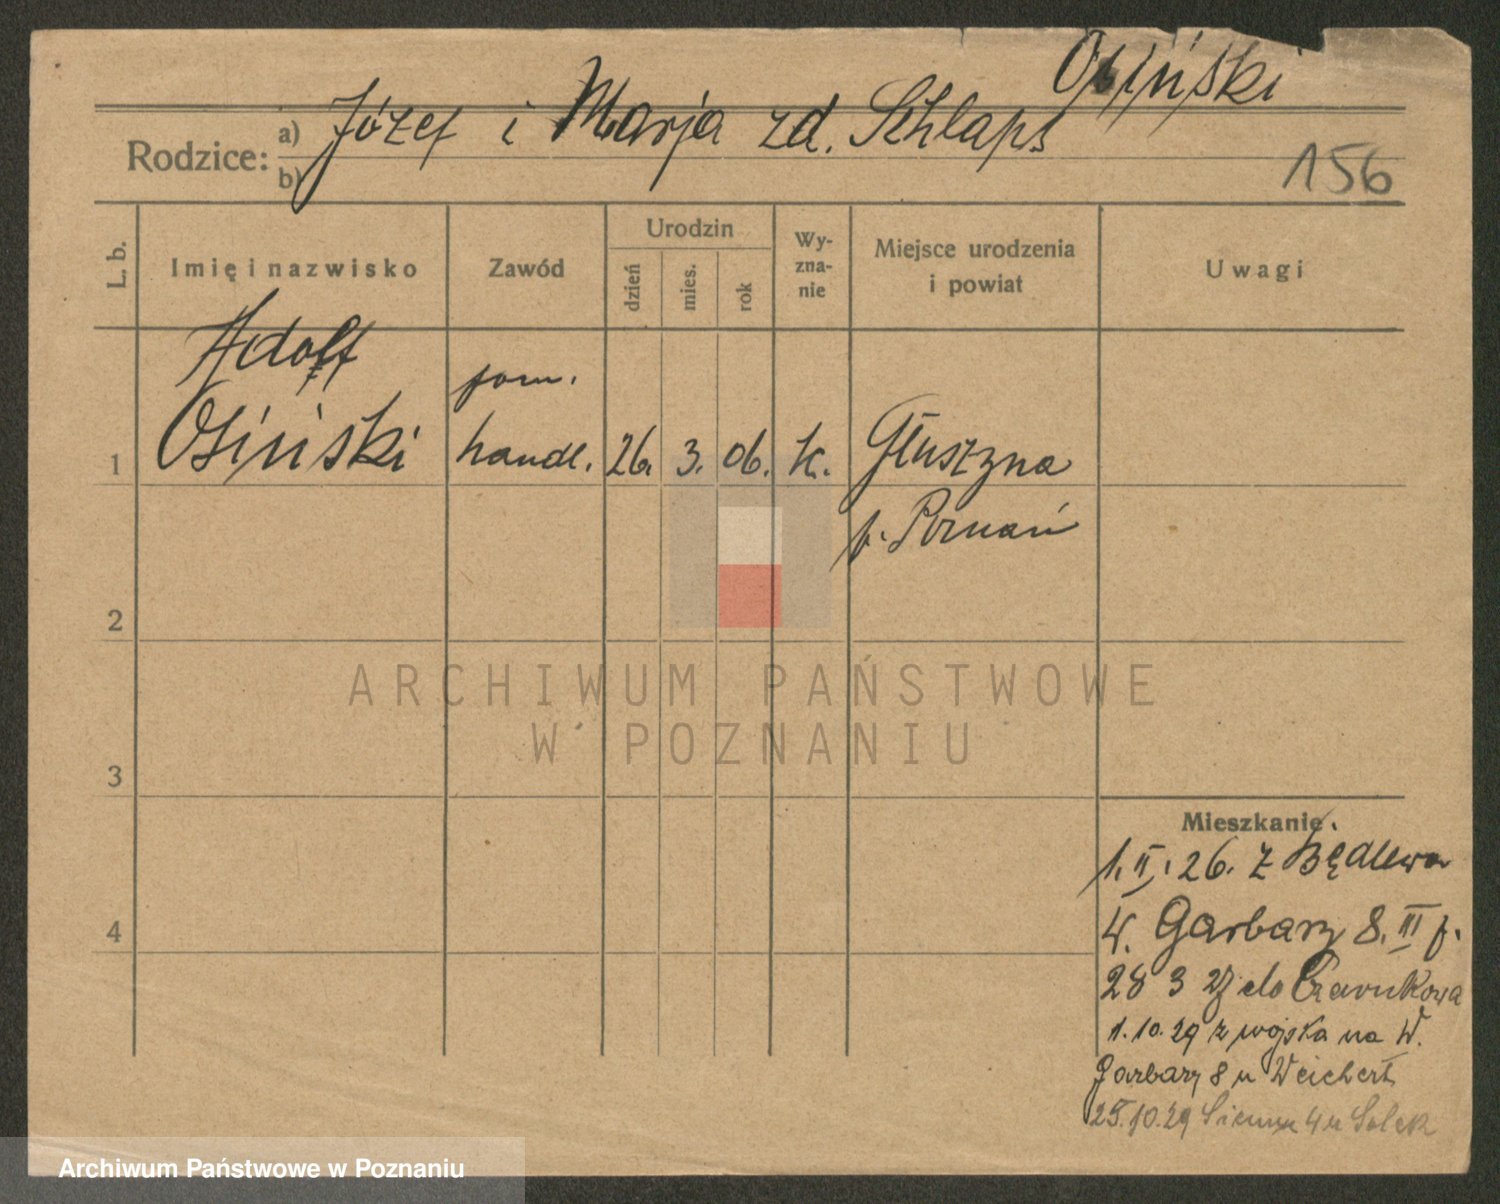 Osiński
Józef i Marja zd. Schlaps
Rodzice: a)
b)
156
L. b.
Imię i nazwisko
Zawód
Urodzin
dzień
mies.
rok
Wy-
zna-
nie
Miejsce urodzenia
i powiat
Uwagi
Adolf
Osiński
pom.
handl.
1
26. 3. 06.
k.
Głuszyna
p. Poznań
2
3
4
ARCHIWUM PAŃSTWOWE
W POZNANIU
Mieszkanie.
1. II. 26. z Będlewa
W. Garbary 8. III p.
28 3 27 do Czarnkowa
1.10.29 z wojska na W.
Garbary 8 u Weichert
25.10.29 4 u
Archiwum Państwowe w Poznaniu